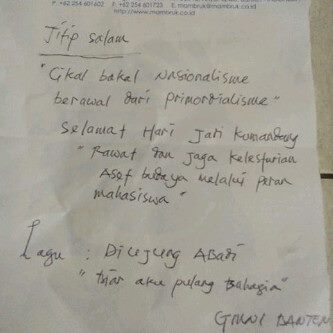 P +62 254 601602 F +62 254 601723 E. mambruk@mambruk.co.id
http://www.mambruk.co.id
Titip salam
"Cikal bakal Nasionalisme
berawal dari primordialisme"
Selamat Hari Jadi Komandang
"Rawat dan jaga kelesfarian
Aset budaya melalui peran
mahasiswa"
Lagu : Diujung Abadi
"biar aku pulang Bahagia"
GMNI BANTEN